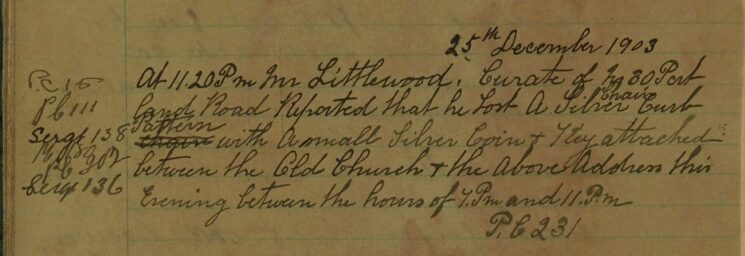 25th December 1903
P.C 15
At 11.20 P m Mr Littlewood. Curate of No 30 Port
PC 111
land Road Reported that he Lost A Silver Curb
Chain
Sergt 138
Pattern
Chain with A small Silver Coin & Key attached
between the Old Church & the Above Address this
Sergt 136
Evening between the hours of 7. Pm and 11. P.m
P.C 231